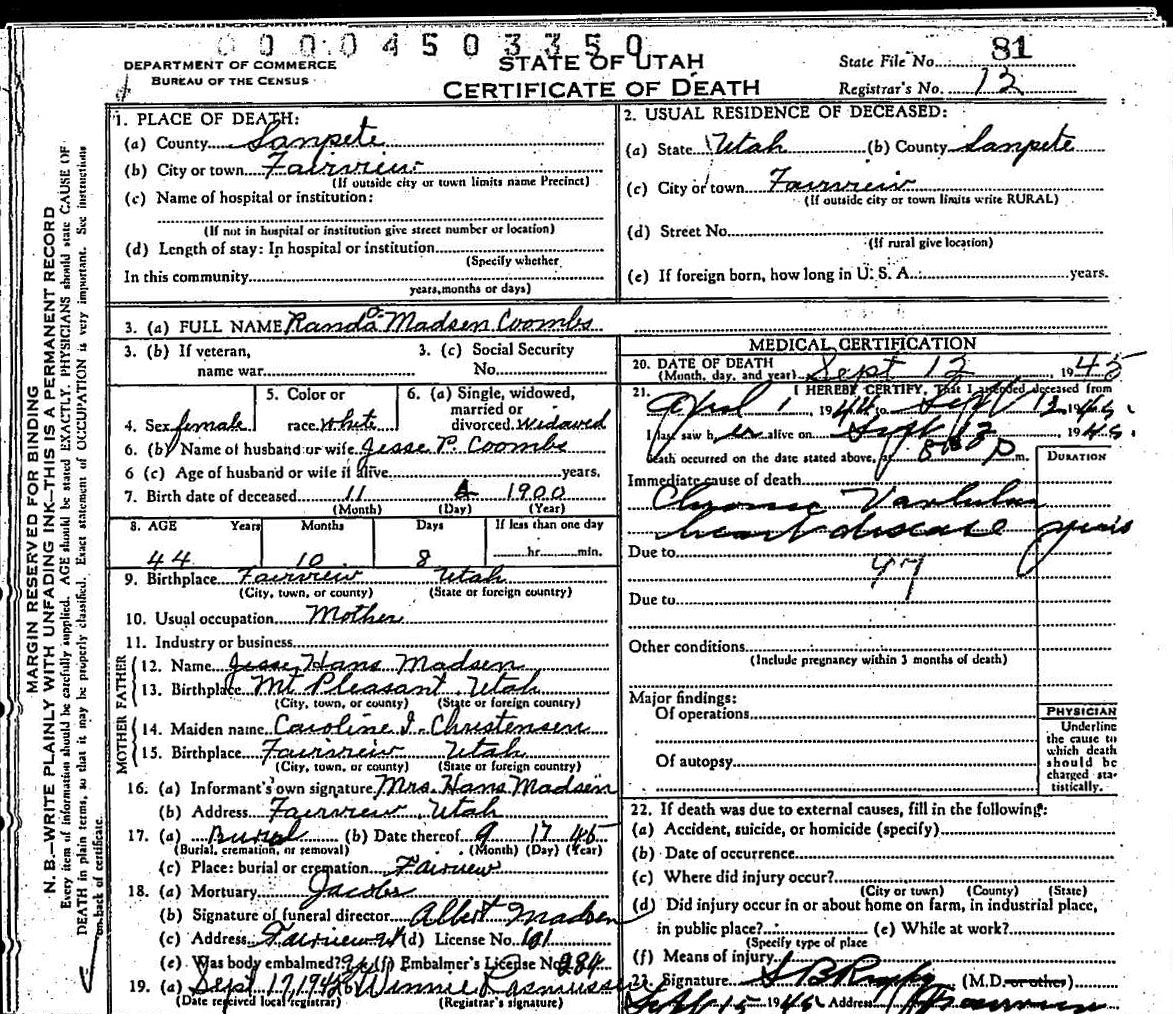 00004503350
DEPARTMENT OF COMMERCE
BUREAU OF THE CENSUS
STATE OF UTAH
CERTIFICATE OF DEATH
State File No. 81
Registrar's No. 12
MARGIN RESERVED FOR BINDING
N. B.—WRITE PLAINLY WITH UNFADING INK—THIS IS A PERMANENT RECORD
Every item of information should be carefully supplied. AGE should be stated EXACTLY. PHYSICIANS should state CAUSE OF
DEATH in plain terms, so that it may be properly classified. Exact statement of OCCUPATION is very important. See instructions
on back of certificate.
1. PLACE OF DEATH:
(a) County Sanpete
(b) City or town Fairview
(If outside city or town limits name Precinct)
(c) Name of hospital or institution:
(If not in hospital or institution give street number or location)
(d) Length of stay: In hospital or institution
(Specify whether
In this community
years, months or days)
2. USUAL RESIDENCE OF DECEASED:
(a) State Utah (b) County Sanpete
(c) City or town Fairview
(If outside city or town limits write RURAL)
(d) Street No.
(If rural give location)
(e) If foreign born, how long in U. S. A.: years.
3. (a) FULL NAME Randa Madsen Coombs
3. (b) If veteran,
name war
3. (c) Social Security
No.
4. Sex female
5. Color or
race White
6. (a) Single, widowed,
married or
divorced. Widowed
6. (b) Name of husband or wife Jesse P. Coombs
6 (c) Age of husband or wife if alive years,
7. Birth date of deceased 11 1900
(Month) (Day) (Year)
8. AGE Years Months Days If less than one day
44 10 8 hr. min.
9. Birthplace Fairview Utah
(City, town, or county) (State or foreign country)
10. Usual occupation Mother
11. Industry or business
FATHER
12. Name Jesse Hans Madsen
13. Birthplace Mt Pleasant Utah
(City, town, or county) (State or foreign country)
MOTHER
14. Maiden name Caroline I. Christensen
15. Birthplace Fairview Utah
(City, town, or county) (State or foreign country)
16. (a) Informant's own signature Mrs. Hans Madsen
(b) Address Fairview, Utah
17. (a) Burial (b) Date thereof 9 17 45
(Burial, cremation, or removal) (Month) (Day) (Year)
(c) Place: burial or cremation Fairview
18. (a) Mortuary Jacobs
(b) Signature of funeral director Albert Madsen
(c) Address Fairview Ut (d) License No. 101
(e) Was body embalmed? yes (f) Embalmer's License No. 284
19. (a) Sept 17, 1945 (b) Winnie Rasmussen
(Date received local registrar) (Registrar's signature)
MEDICAL CERTIFICATION
20. DATE OF DEATH
(Month, day, and year) Sept 12, 1945
21. I HEREBY CERTIFY, That I attended deceased from
April 1, 1944 to Sept 12 1945.
I last saw her alive on Sept 12 1945.
Death occurred on the date stated above, at 8 P m.
DURATION
Immediate cause of death
Chronic Valvular
heart disease years
Due to
97
Due to
Other conditions
(Include pregnancy within 3 months of death)
Major findings:
Of operations
Of autopsy
PHYSICIAN
Underline
the cause to
which death
should be
charged sta-
tistically.
22. If death was due to external causes, fill in the following:
(a) Accident, suicide, or homicide (specify)
(b) Date of occurrence
(c) Where did injury occur?
(City or town) (County) (State)
(d) Did injury occur in or about home on farm, in industrial place,
in public place? (e) While at work?
(Specify type of place
(f) Means of injury
23. Signature (M.D. or other)
Sept 15 1945 Address Fairview